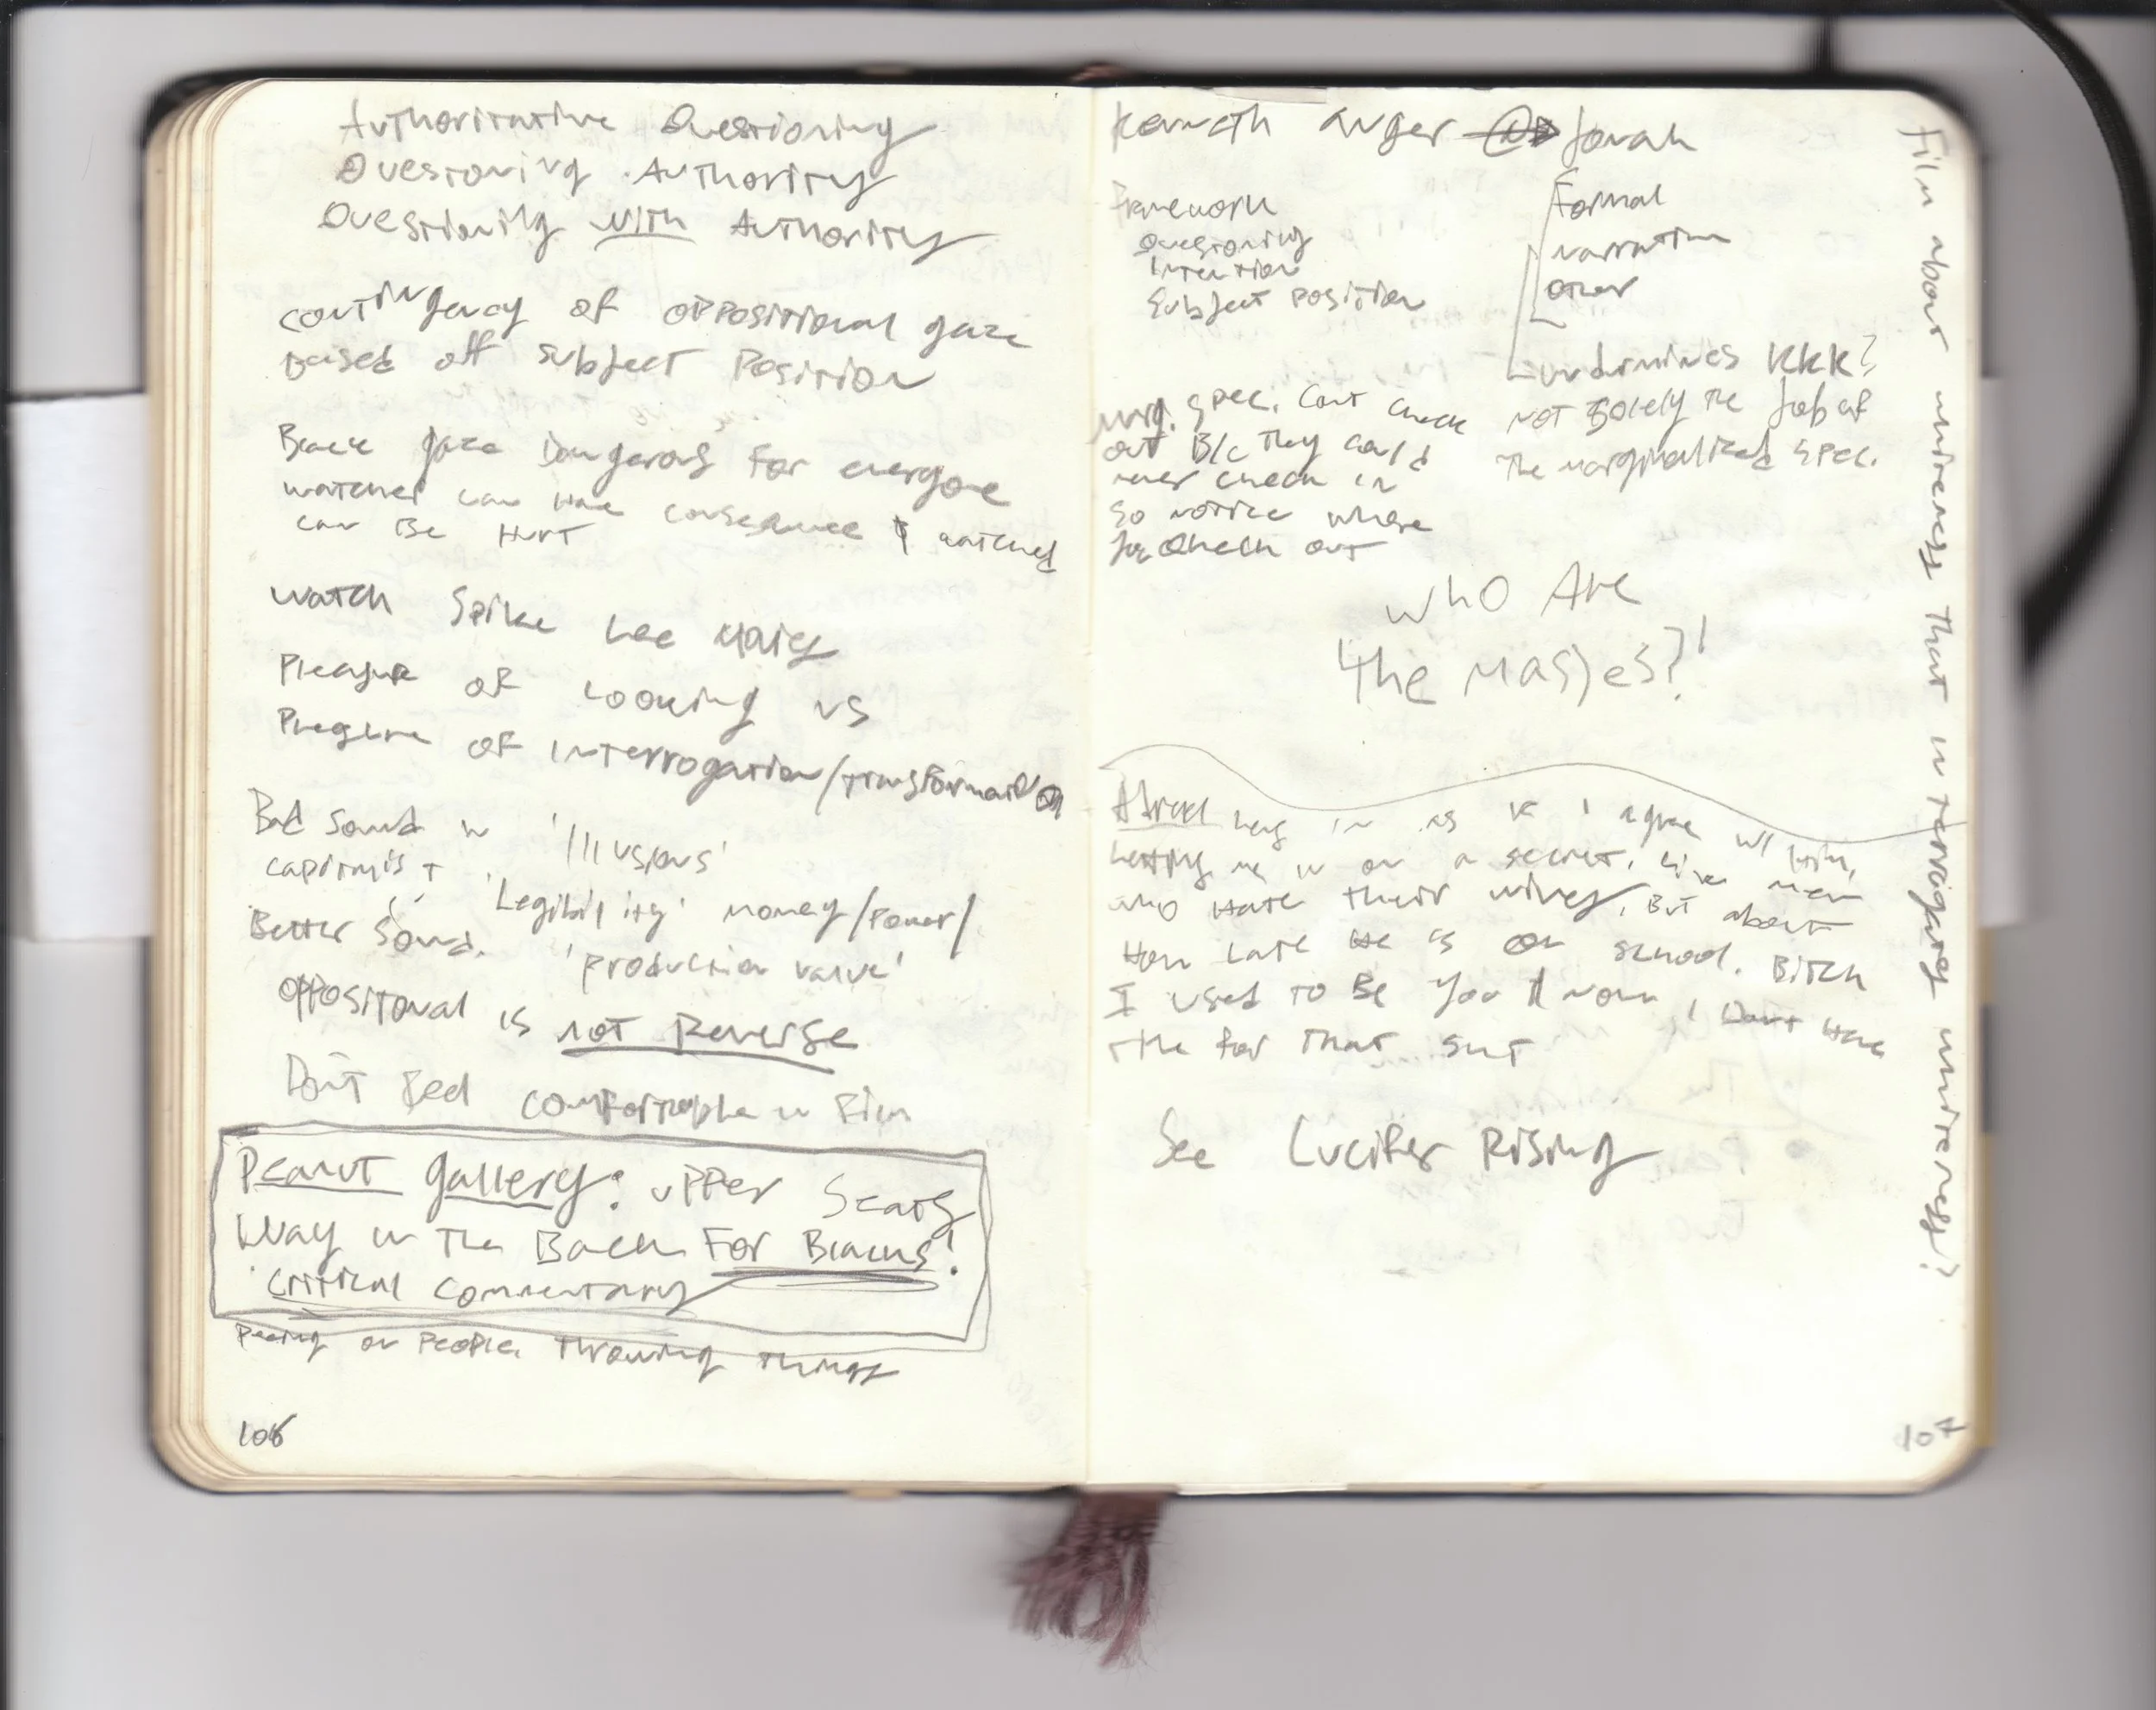 Authoritative Questioning
Questioning Authority
Questioning with Authority
contingency of oppositional gaze
based off subject Position
Black gaze Dangerous for everyone
watcher can have consequence & watched
can Be Hurt
watch Spike Lee
Pleasure of Looking vs
Pleasure of interrogation/transformation
Bad Sound in 'Illusions'
capitalist 'Legibility' money/Power/
Better Sound. 'production value'
oppositional is not Reverse
Don't feel comfortable in Film
Peanut gallery: upper Seats
Way in The Back For Blacks!
critical commentary
Peeing on People, Throwing Things
106
Kenneth Anger Jonah
Framework
Questioning
Intention
Subject Position
Formal
narrative
other
undermines KKK?
not solely the job of
the marginalized spec.
mrg. spec. Can't check
out B/c they could
never check in
so notice where
you check out
Who Are
the Masses?!
lets in as if I agree w/ him,
letting me in on a secret. Like men
who Hate their wives, But about
How Late He is on school. Bitch
I used to Be you & now I Don't Have
time for that shit
See Lucifer Rising
Film about whiteness that interrogates whiteness?
107